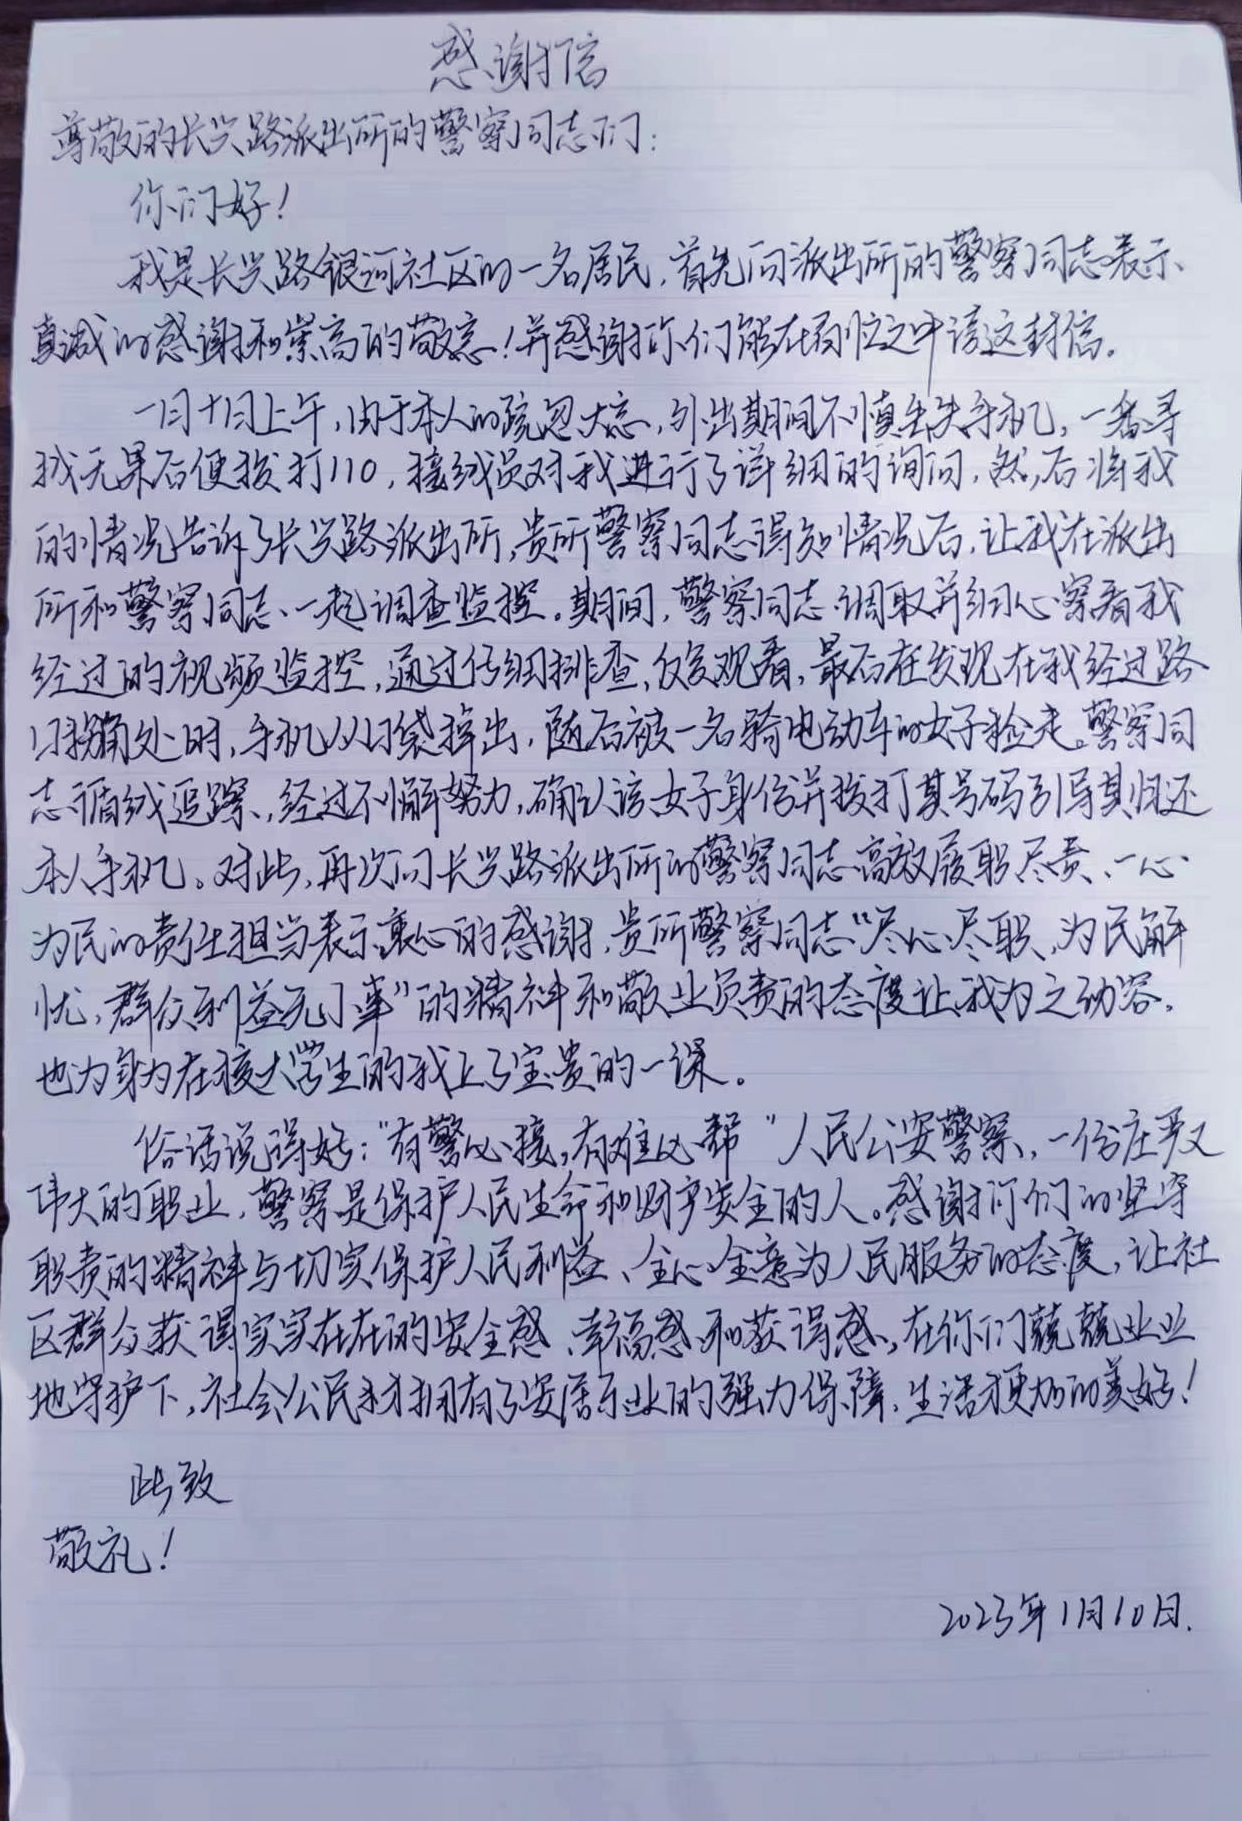 感谢信
尊敬的长兴路派出所的警察同志们：
你们好！
我是长兴路银河社区的一名居民，首先向派出所的警察同志表示
真诚的感谢和崇高的敬意！并感谢你们能在百忙之中读这封信。
一月十日上午，由于本人的疏忽大意，外出期间不慎丢失手机，一番寻
找无果后便拨打110，接线员对我进行了详细的询问，然后将我
的情况告诉了长兴路派出所，贵所警察同志得知情况后，让我在派出
所和警察同志一起调查监控。期间，警察同志调取并细心察看我
经过的视频监控，通过仔细排查、反复观看，最后在发现在我经过路
口拐角处时，手机从口袋掉出，随后被一名骑电动车的女子捡走。警察同
志循线追踪，经过不懈努力，确认该女子身份并拨打其号码引导其归还
本人手机。对此，再次向长兴路派出所的警察同志高效履职尽责、一心
为民的责任担当表示衷心的感谢，贵所警察同志“尽心尽职、为民解
忧，群众利益无小事”的精神和敬业负责的态度让我为之动容，
也为身为在校大学生的我上了宝贵的一课。
俗话说得好：“有警必接，有难必帮”人民公安警察，一份庄严又
伟大的职业，警察是保护人民生命和财产安全的人。感谢你们的坚守
职责的精神与切实保护人民利益、全心全意为人民服务的态度，让社
区群众获得实实在在的安全感、幸福感和获得感，在你们兢兢业业
地守护下，社会公民才拥有了安居乐业的强力保障，生活更加的美好！
此致
敬礼！
2023年1月10日.